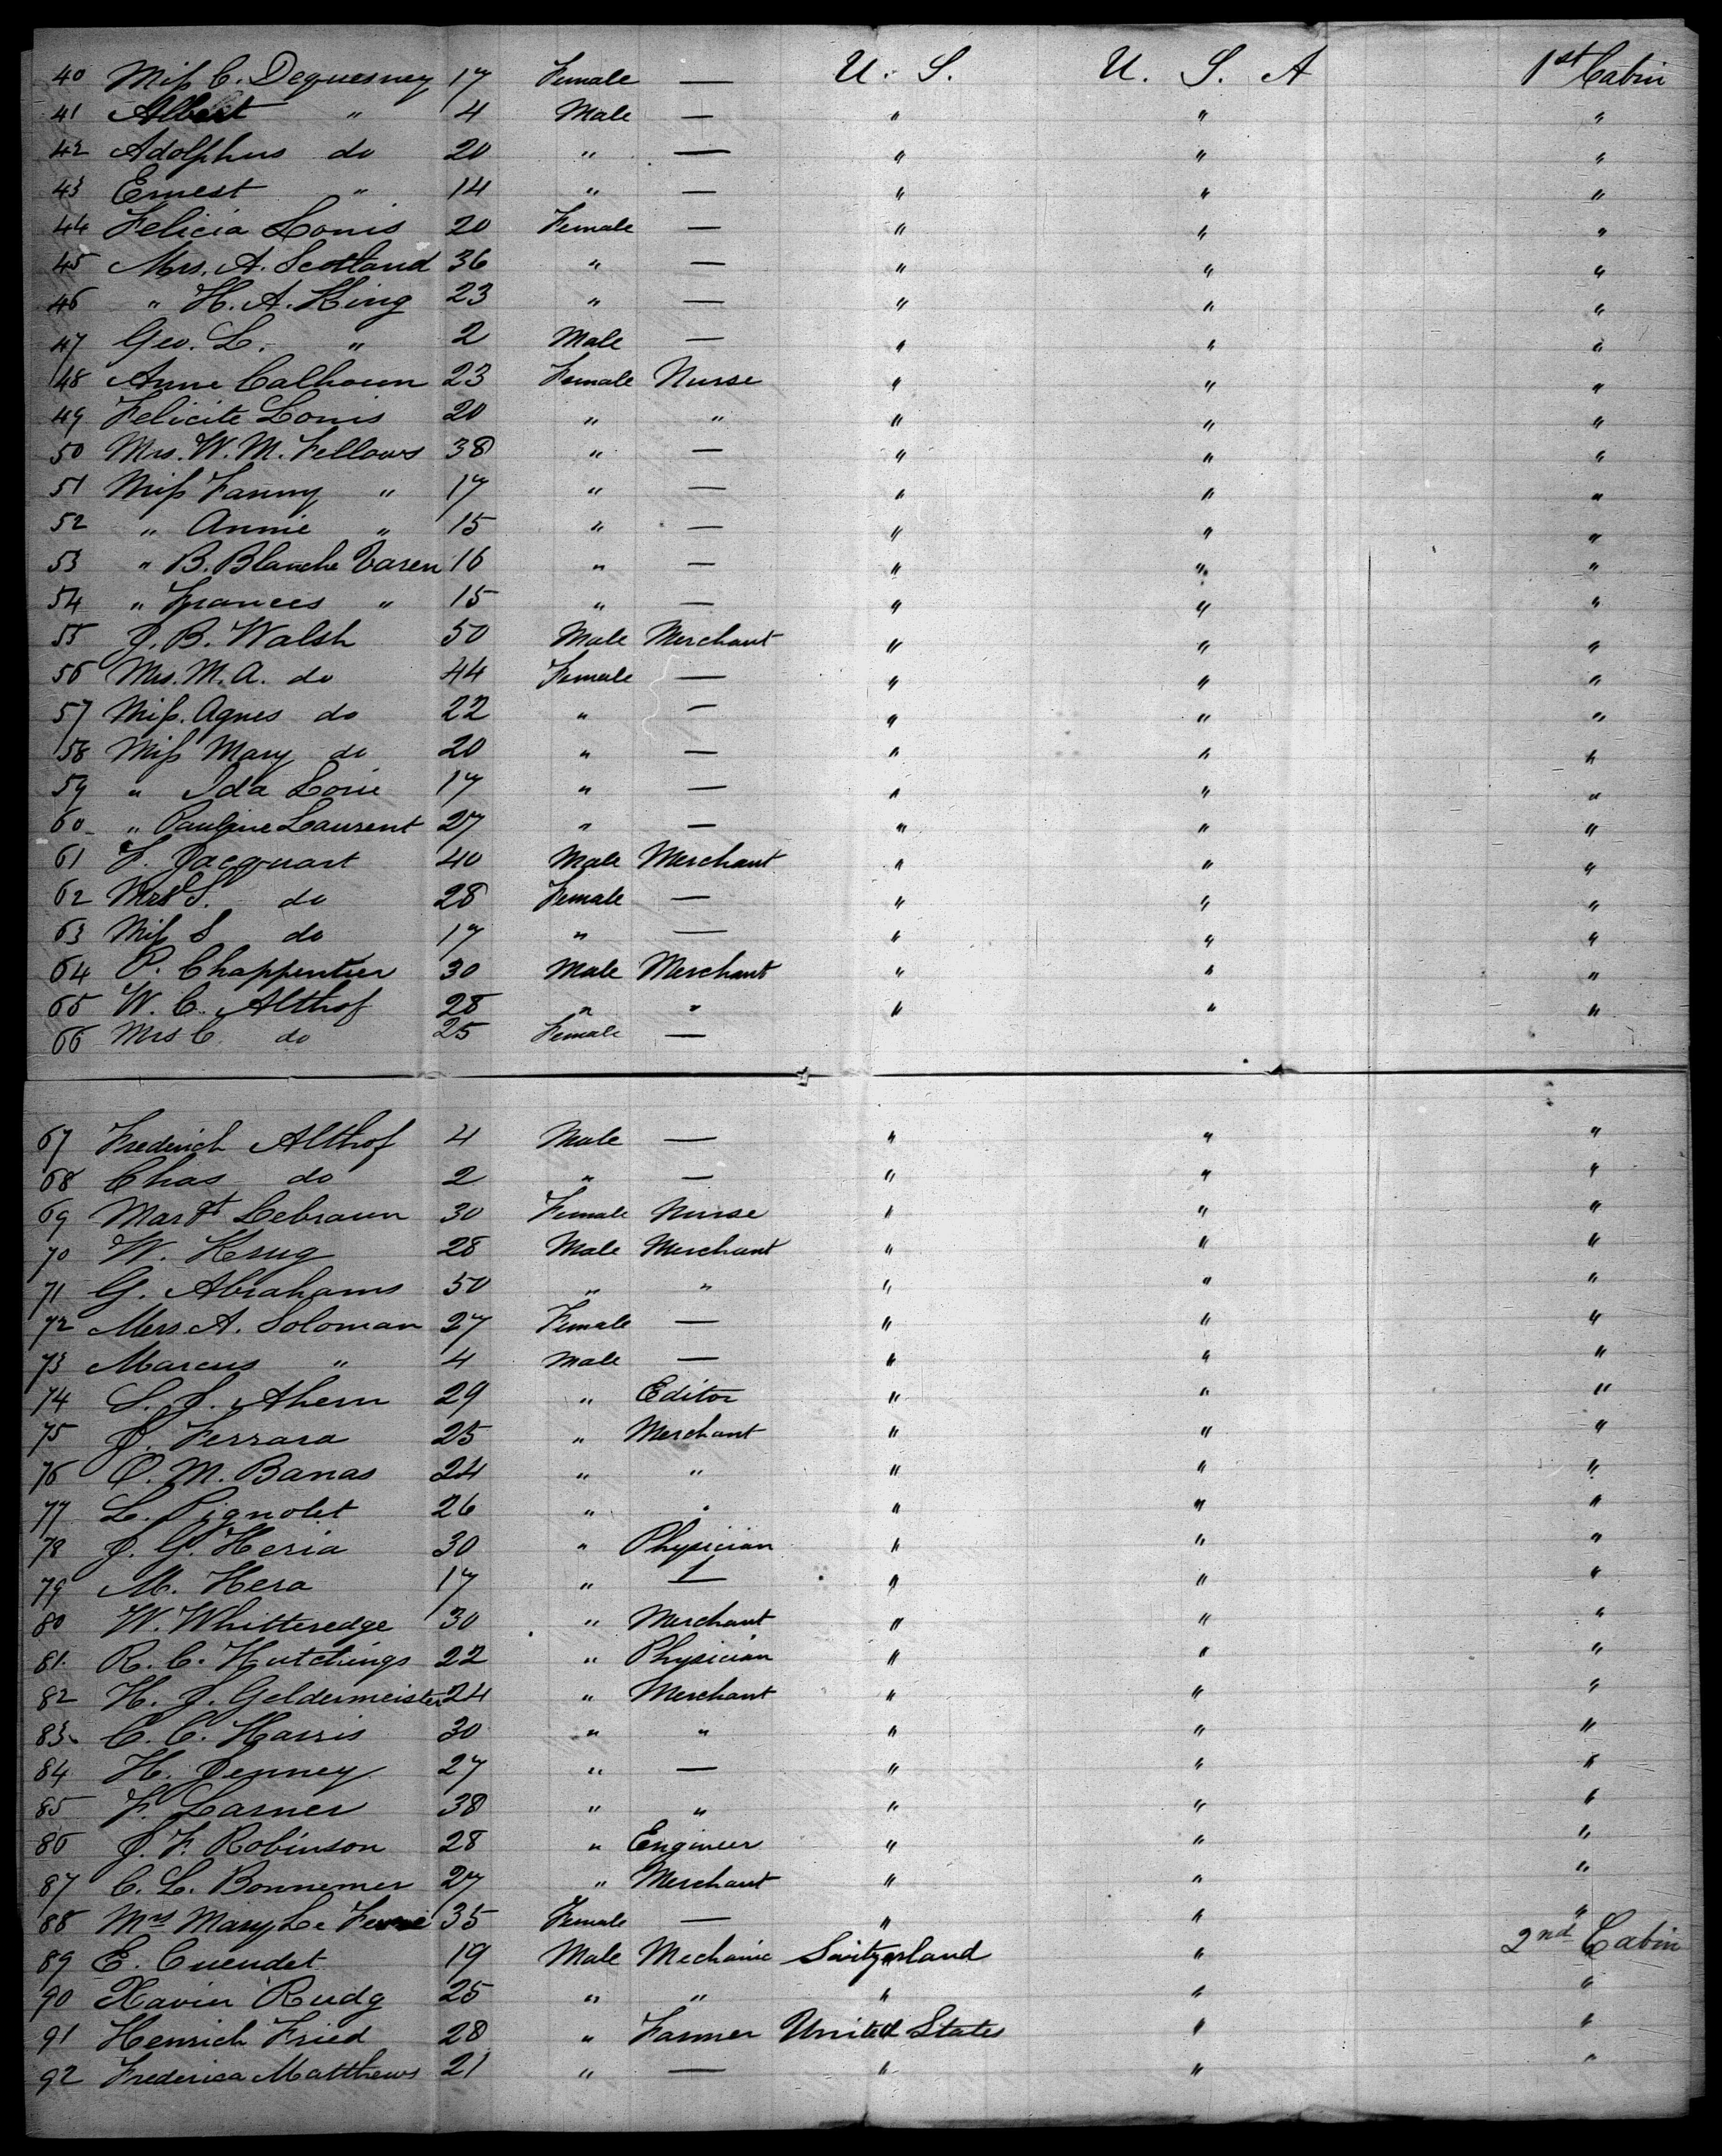 40 Miss C. Dequesney 17 Female — U. S. U. S. A 1st Cabin
41 Albert " 4 Male — " " "
42 Adolphus do 20 " — " " "
43 Ernest " 14 " — " " "
44 Felicia Louis 20 Female — " " "
45 Mrs. A. Scotland 36 " — " " "
46 " H. A. King 23 " — " " "
47 Geo. L. " 2 Male — " " "
48 Anne Calhoun 23 Female Nurse " " "
49 Felicite Louis 20 " " " " "
50 Mrs. W. M. Fellows 38 " — " " "
51 Miss Fanny " 17 " — " " "
52 " Annie " 15 " — " " "
53 " B. Blanche Varen 16 " — " " "
54 " Frances " 15 " — " " "
55 J. B. Walsh 50 Male Merchant " " "
56 Mrs. M. A. do 44 Female — " " "
57 Miss. Agnes do 22 " — " " "
58 Miss Mary do 20 " — " " "
59 " Ida Lorie 17 " — " " "
60 " Pauline Laurent 27 " — " " "
61 F. Jacquart 40 Male Merchant " " "
62 Mrs S. do 28 Female — " " "
63 Miss S do 17 " — " " "
64 P. Chappentier 30 Male Merchant " " "
65 W. C. Althof 28 " " " " "
66 Mrs C. do 25 Female —
67 Frederich Althof 4 Male — " " "
68 Chas do 2 " — " " "
69 Margt Lebraun 30 Female Nurse " " "
70 W. Krug 28 Male Merchant " " "
71 G. Abrahams 50 " " " " "
72 Mrs. A. Soloman 27 Female — " " "
73 Marcus " 4 Male — " " "
74 S. J. Ahern 29 " Editor " " "
75 J. Ferrara 25 " Merchant " " "
76 O. M. Banas 24 " " " " "
77 L. Pignolet 26 " " " " "
78 J. G. Heria 30 " Physician " " "
79 M. Hera 17 " — " " "
80 W. Whitteredge 30 " Merchant " " "
81. R. C. Hutchings 22 " Physician " " "
82 H. J. Geldermeister 24 " Merchant " " "
83 C. C. Harris 30 " " " " "
84 H. Jenney 27 " — " " "
85 F. Larner 38 " " " " "
86 J. F. Robinson 28 " Engineer " " "
87 C. L. Bonnemer 27 " Merchant " " "
88 Mrs Mary Le 35 Female — " " "
89 E. Cuendet 19 Male Mechanic Switzerland " 2nd Cabin
90 Xavier Rudg 25 " " " " "
91 Henrich Fried 28 " Farmer United States " "
92 Frederica Matthews 21 " — " " "